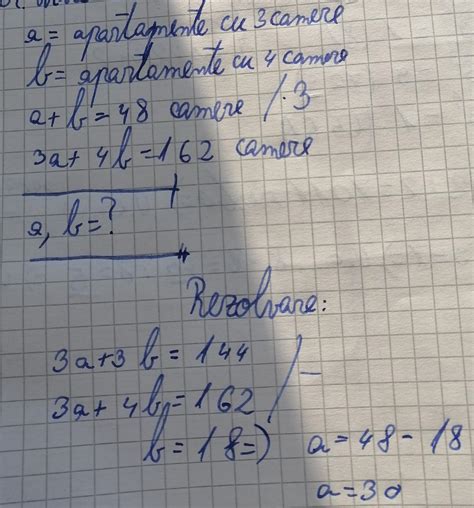 a = apartamente cu 3 camere
b = apartamente cu 4 camere
a + b = 48 camere / · 3
3a + 4b = 162 camere
a, b = ?
Rezolvare:
3a + 3b = 144
3a + 4b = 162 / -
b = 18 =) a = 48 - 18
a = 30